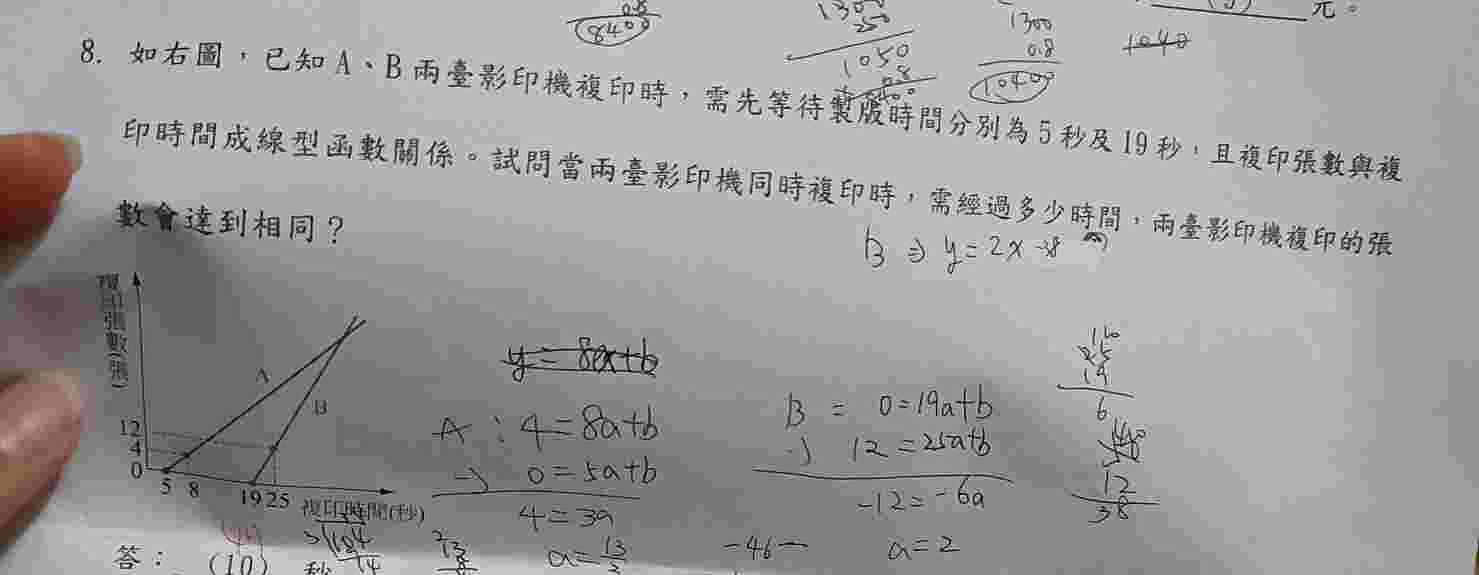 0.8
8400
1300
250
1050
0.8
1300
0.8
10400
1040
元。
8. 如右圖,已知A、B兩臺影印機複印時,需先等待製版時間分別為5秒及19秒,且複印張數與複
印時間成線型函數關係。試問當兩臺影印機同時複印時,需經過多少時間,兩臺影印機複印的張
數會達到相同?
B ⇒ y=2x-38
複印張數(張)
A
B
12
4
0
5 8 19 25 複印時間(秒)
y=8a+b
A : 4=8a+b
-) 0=5a+b
4=3a
a=13
B = 0=19a+b
-) 12=25a+b
-12=-6a
a=2
19
6
12
38
-46-
答:
(10)
秒